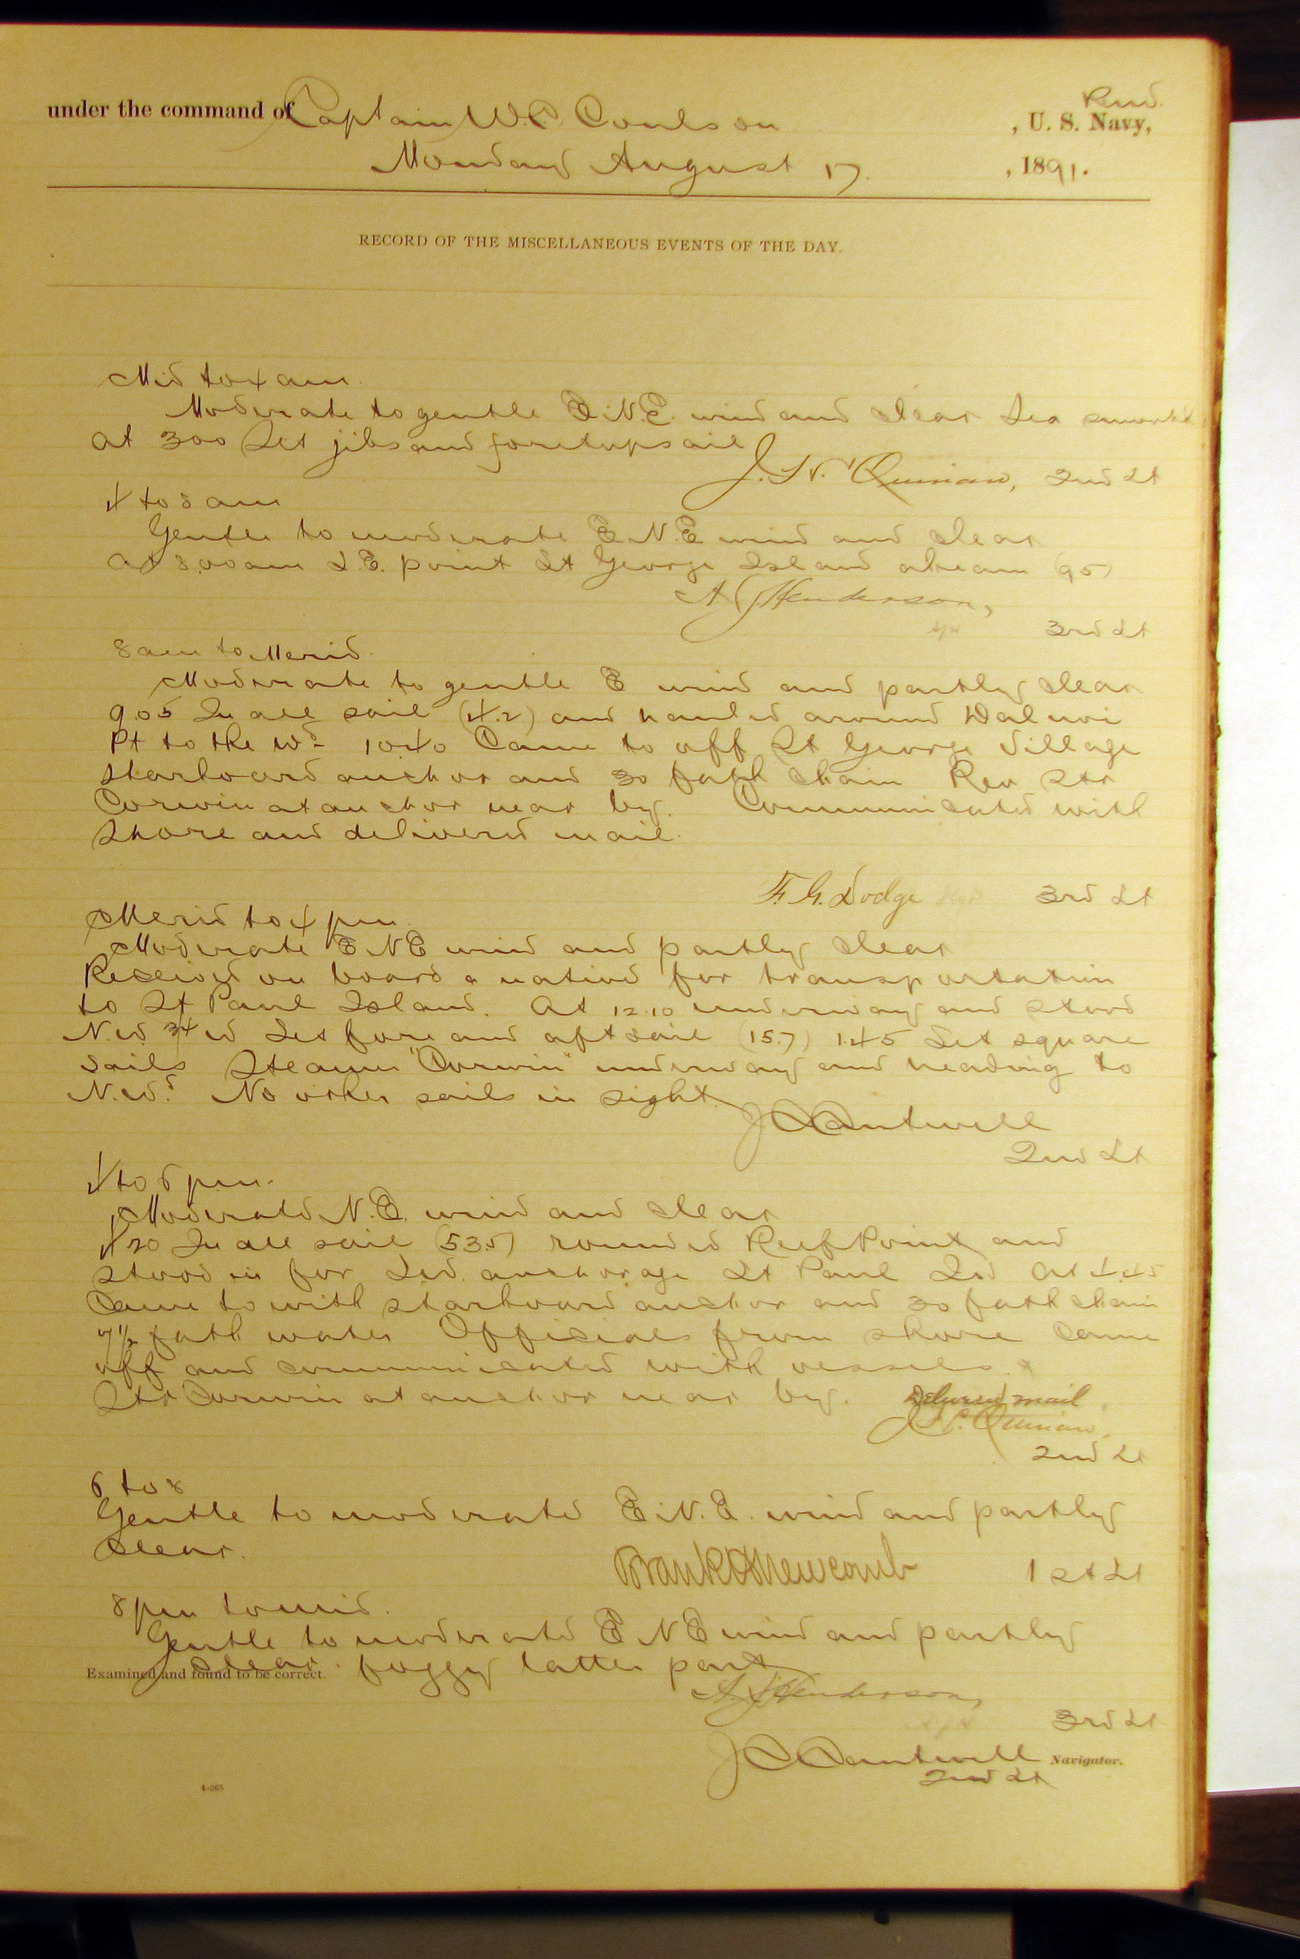 under the command of Captain W.C. Coulson Rev. , U. S. Navy,
Monday August 17 , 1891.
RECORD OF THE MISCELLANEOUS EVENTS OF THE DAY.
Mid to 4 am.
Moderate to gentle E.N.E. wind and clear Sea smooth
At 300 Set jibs and foretopsail
J. H. Quinan, 2nd Lt
4 to 8 am
Gentle to moderate E.N.E wind and clear
At 8.00 am S.E. point St George Island abeam (95)
A J Henderson,
3rd Lt
8 am to Merid.
Moderate to gentle E wind and partly clear
9.05 In all sail (4.2) and hauled around Dalnoi
Pt to the Wd 1040 Came to off St George Village
Starboard anchor and 30 fath chain Rev Str
Corwin at anchor near by. Communicated with
Shore and delivered mail.
F. G. Dodge 3rd Lt
Merid to 4 pm.
Moderate E NE wind and partly clear
Received on board a native for transportation
to St Paul Island. At 12.10 underway and stood
N.W 3/4 W Set fore and aft sail (15.7) 1.45 Set square
sails Steamer "Corwin" underway and heading to
N.Wd. No other sails in sight.
J C Cantwell
2nd Lt
4 to 6 pm.
Moderate N.E. wind and clear
4 20 In all sail (53.5) rounded Reef Point and
stood in for anchorage St Paul Isd At
Came to with starboard anchor and 30 fath chain
7 1/2 fath water Officials from shore came
off and communicated with vessels
Str Corwin at anchor near by. Delivered mail
J. H. Quinan,
2nd Lt
6 to 8
Gentle to moderate E.N.E. wind and partly
clear.
Frank H Newcomb 1st Lt
8 pm to mid.
Gentle to moderate E N E wind and partly
clear. foggy latter part
Examined and found to be correct.
A J Henderson,
3rd Lt
J C Cantwell Navigator.
2nd Lt